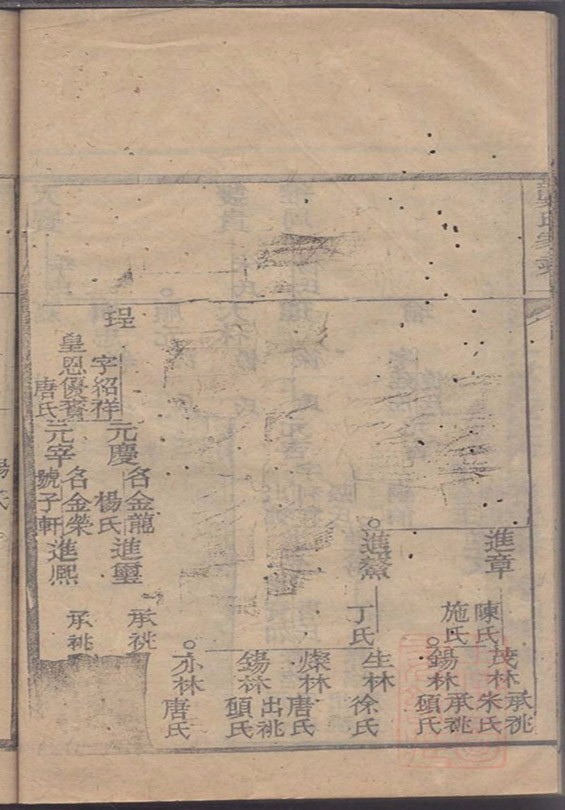 進章
陳氏
施氏
茂林
承祧
朱氏
錫林
承祧
頭氏
進鰲
丁氏
生林
徐氏
燦林
唐氏
錫林
出祧
頭氏
亦林
唐氏
珵
字紹祥
皇恩優賚
唐氏
元慶
名金龍
楊氏
進璽
承祧
元宰
名金榮
號子軒
進熙
承祧